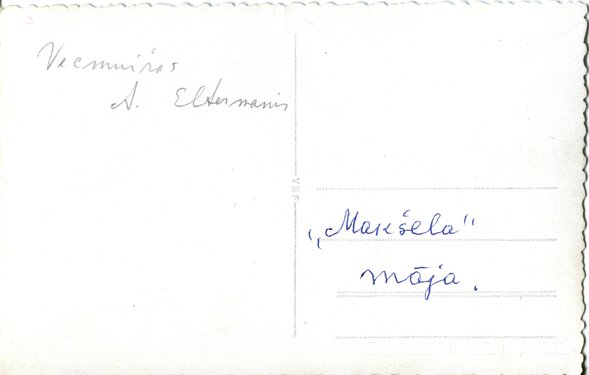 Vecmuižas
A. Eltermanis
VEF
„Makšela"
māja.